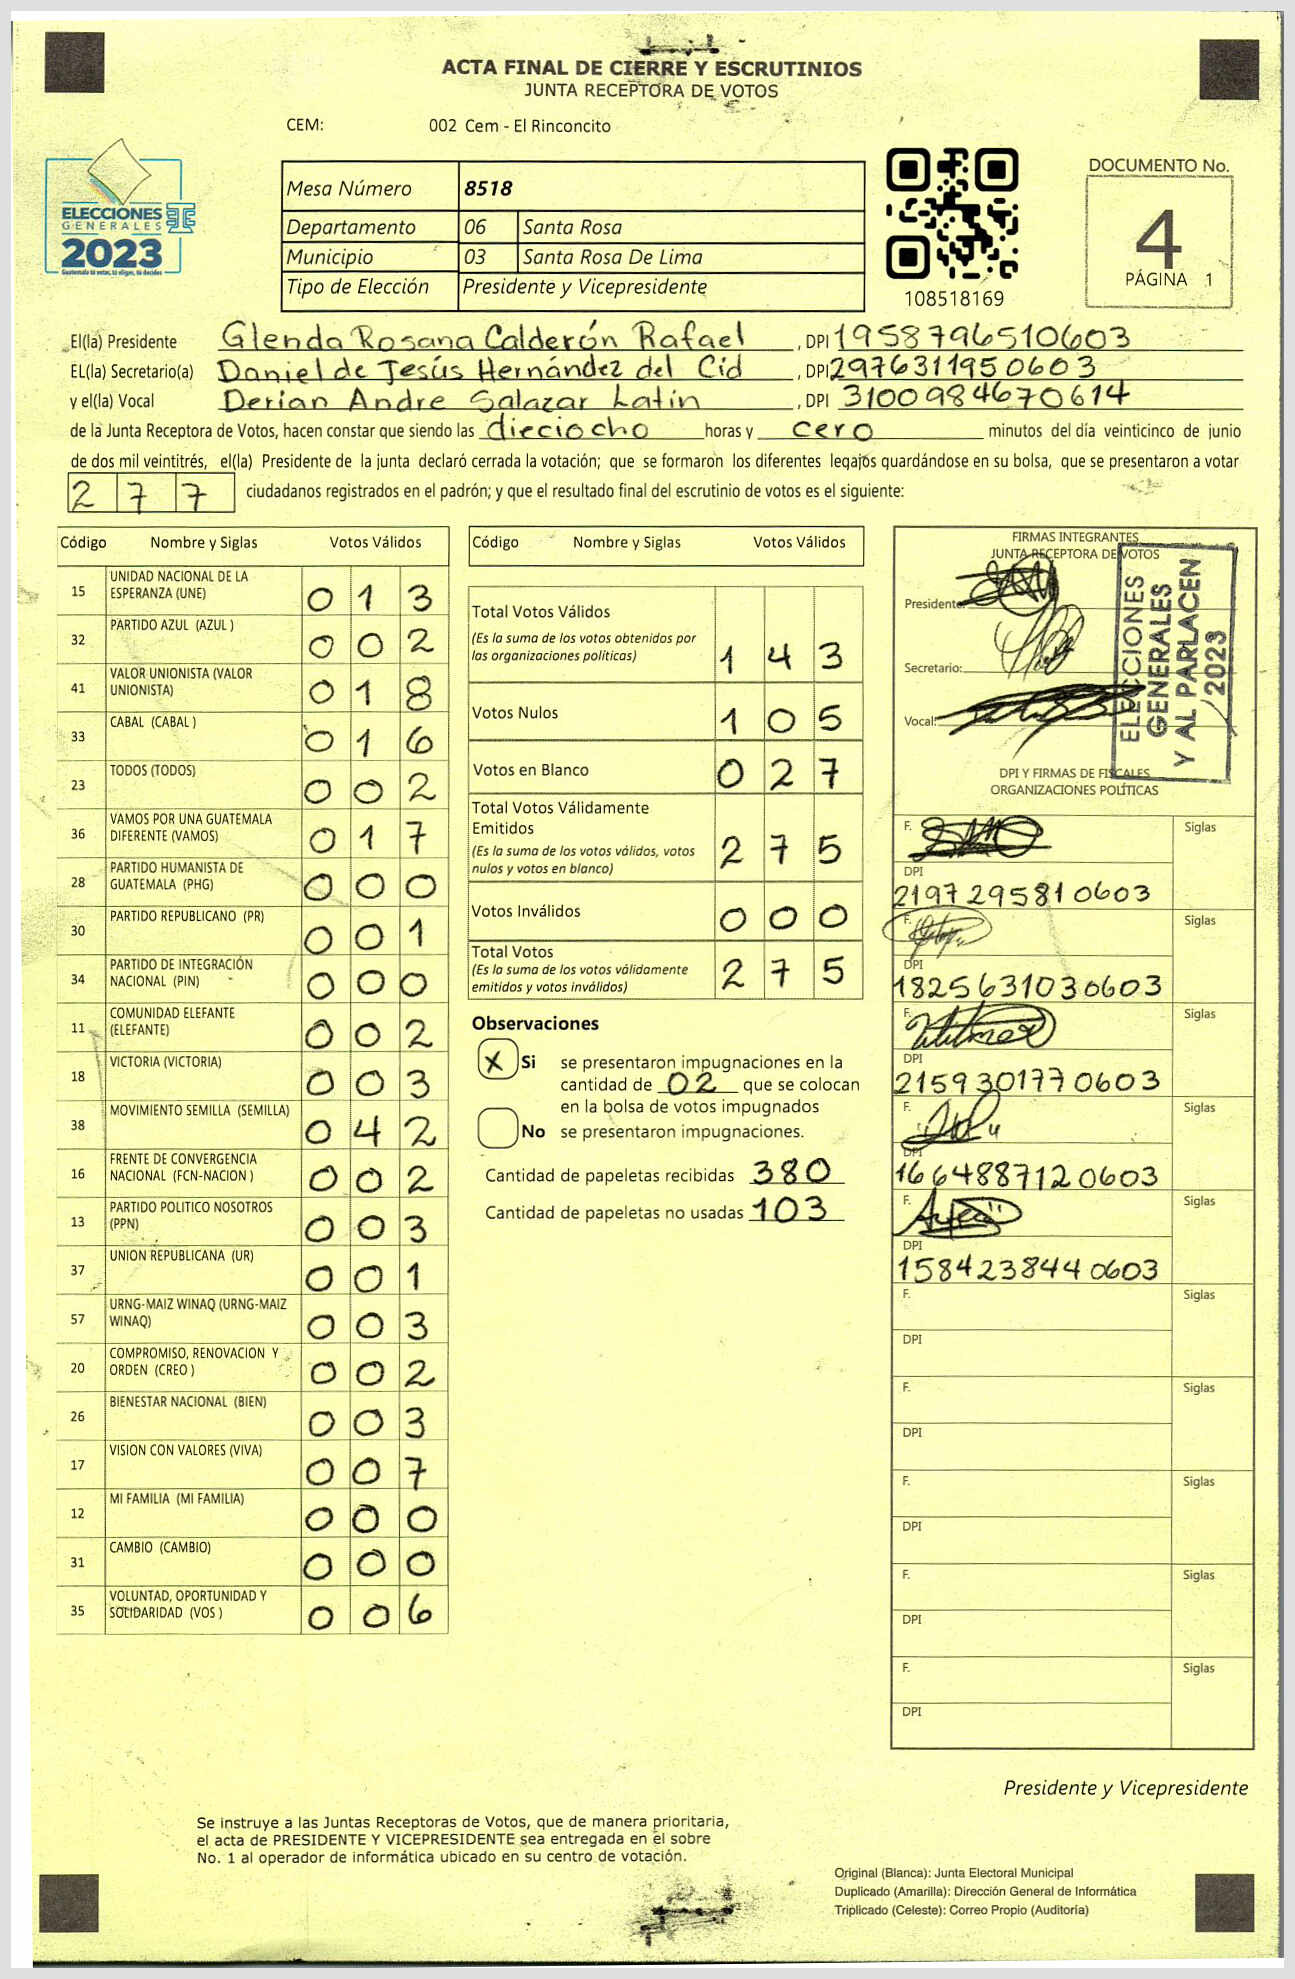 ACTA FINAL DE CIERRE Y ESCRUTINIOS
JUNTA RECEPTORA DE VOTOS
CEM: 002 Cem - El Rinconcito
ELECCIONES
GENERALES
2023
Guatemala tú votas, tú eliges, tú decides
Mesa Número 8518
Departamento 06 Santa Rosa
Municipio 03 Santa Rosa De Lima
Tipo de Elección Presidente y Vicepresidente
108518169
DOCUMENTO No.
4
PÁGINA 1
El(la) Presidente Glenda Rosana Calderón Rafael , DPI 1958796510603
EL(la) Secretario(a) Daniel de Jesús Hernández del Cid , DPI 2976311950603
y el(la) Vocal Derian Andre Salazar Latin , DPI 3100984670614
de la Junta Receptora de Votos, hacen constar que siendo las dieciocho horas y cero minutos del día veinticinco de junio
de dos mil veintitrés, el(la) Presidente de la junta declaró cerrada la votación; que se formaron los diferentes legajos guardándose en su bolsa, que se presentaron a votar
277 ciudadanos registrados en el padrón; y que el resultado final del escrutinio de votos es el siguiente:
Código Nombre y Siglas Votos Válidos
15 UNIDAD NACIONAL DE LA ESPERANZA (UNE) 013
32 PARTIDO AZUL (AZUL ) 002
41 VALOR UNIONISTA (VALOR UNIONISTA) 018
33 CABAL (CABAL ) 016
23 TODOS (TODOS) 002
36 VAMOS POR UNA GUATEMALA DIFERENTE (VAMOS) 017
28 PARTIDO HUMANISTA DE GUATEMALA (PHG) 000
30 PARTIDO REPUBLICANO (PR) 001
34 PARTIDO DE INTEGRACIÓN NACIONAL (PIN) 000
11 COMUNIDAD ELEFANTE (ELEFANTE) 002
18 VICTORIA (VICTORIA) 003
38 MOVIMIENTO SEMILLA (SEMILLA) 042
16 FRENTE DE CONVERGENCIA NACIONAL (FCN-NACION ) 002
13 PARTIDO POLITICO NOSOTROS (PPN) 003
37 UNION REPUBLICANA (UR) 001
57 URNG-MAIZ WINAQ (URNG-MAIZ WINAQ) 003
20 COMPROMISO, RENOVACION Y ORDEN (CREO ) 002
26 BIENESTAR NACIONAL (BIEN) 003
17 VISION CON VALORES (VIVA) 007
12 MI FAMILIA (MI FAMILIA) 000
31 CAMBIO (CAMBIO) 000
35 VOLUNTAD, OPORTUNIDAD Y SOLIDARIDAD (VOS ) 006
Código Nombre y Siglas Votos Válidos
Total Votos Válidos
(Es la suma de los votos obtenidos por
las organizaciones políticas) 143
Votos Nulos 105
Votos en Blanco 027
Total Votos Válidamente
Emitidos
(Es la suma de los votos válidos, votos
nulos y votos en blanco) 275
Votos Inválidos 000
Total Votos
(Es la suma de los votos válidamente
emitidos y votos inválidos) 275
Observaciones
X Si se presentaron impugnaciones en la
cantidad de 02 que se colocan
en la bolsa de votos impugnados
No se presentaron impugnaciones.
Cantidad de papeletas recibidas 380
Cantidad de papeletas no usadas 103
FIRMAS INTEGRANTES
JUNTA RECEPTORA DE VOTOS
Presidente:
Secretario:
Vocal:
ELECCIONES
GENERALES
Y AL PARLACEN
2023
DPI Y FIRMAS DE FISCALES
ORGANIZACIONES POLÍTICAS
F. Siglas
DPI
2197295810603
F. Siglas
DPI
1825631030603
F. Siglas
DPI
2159301770603
F. Siglas
DPI
1664887120603
F. Siglas
DPI
1584238440603
F. Siglas
DPI
F. Siglas
DPI
F. Siglas
DPI
F. Siglas
DPI
F. Siglas
DPI
Presidente y Vicepresidente
Se instruye a las Juntas Receptoras de Votos, que de manera prioritaria,
el acta de PRESIDENTE Y VICEPRESIDENTE sea entregada en el sobre
No. 1 al operador de informática ubicado en su centro de votación.
Original (Blanca): Junta Electoral Municipal
Duplicado (Amarilla): Dirección General de Informática
Triplicado (Celeste): Correo Propio (Auditoría)